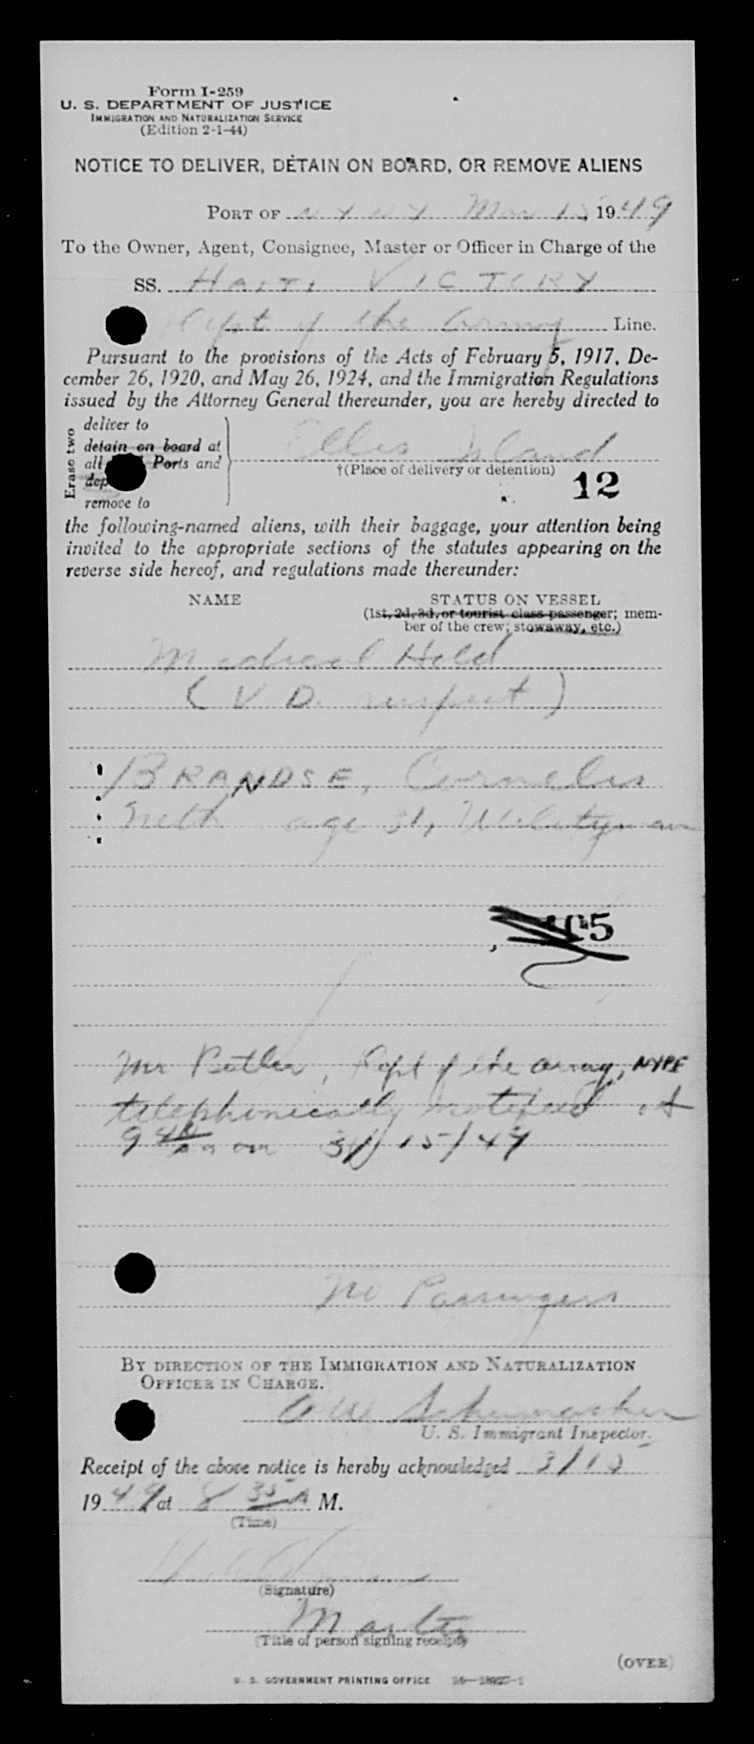 Form I-259
U. S. DEPARTMENT OF JUSTICE
IMMIGRATION AND NATURALIZATION SERVICE
(Edition 2-1-44)
NOTICE TO DELIVER, DETAIN ON BOARD, OR REMOVE ALIENS
PORT OF N Y N Y Mar 15, 1949
To the Owner, Agent, Consignee, Master or Officer in Charge of the
SS. HAITI VICTORY
Dept of the Army Line.
Pursuant to the provisions of the Acts of February 5, 1917, De-
cember 26, 1920, and May 26, 1924, and the Immigration Regulations
issued by the Attorney General thereunder, you are hereby directed to
Erase two
deliver to
detain on board at
all Ports and
dep
remove to
Ellis Island
†(Place of delivery or detention)
12
the following-named aliens, with their baggage, your attention being
invited to the appropriate sections of the statutes appearing on the
reverse side hereof, and regulations made thereunder:
NAME STATUS ON VESSEL
(1st, 2d, 3d, or tourist class passenger; mem-
ber of the crew; stowaway, etc.)
Medical Hold
(V D. suspect)
BRANDSE, Cornelis
Neth age 31, Utilityman
5
Mr Butler, Dept of the army, NYPE
telephonically notified at
9 am on 3/15/49
No Passengers
BY DIRECTION OF THE IMMIGRATION AND NATURALIZATION
OFFICER IN CHARGE.
Schumacher
U. S. Immigrant Inspector.
Receipt of the above notice is hereby acknowledged 3/15
1949 at 8 35 A M.
(Time)
(Signature)
Master
(Title of person signing receipt)
(OVER)
U. S. GOVERNMENT PRINTING OFFICE